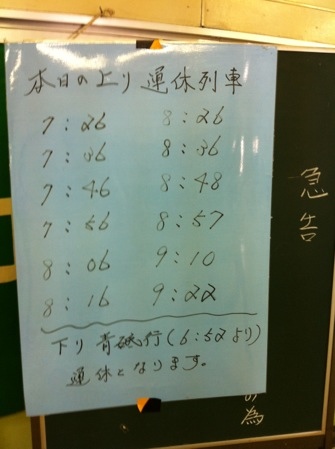 本日の上り 運休列車
7:26 8:26
7:36 8:36
7:46 8:48
7:56 8:57
8:06 9:10
8:16 9:22
下り 青砥行(6:52より)
運休となります。
急告
為